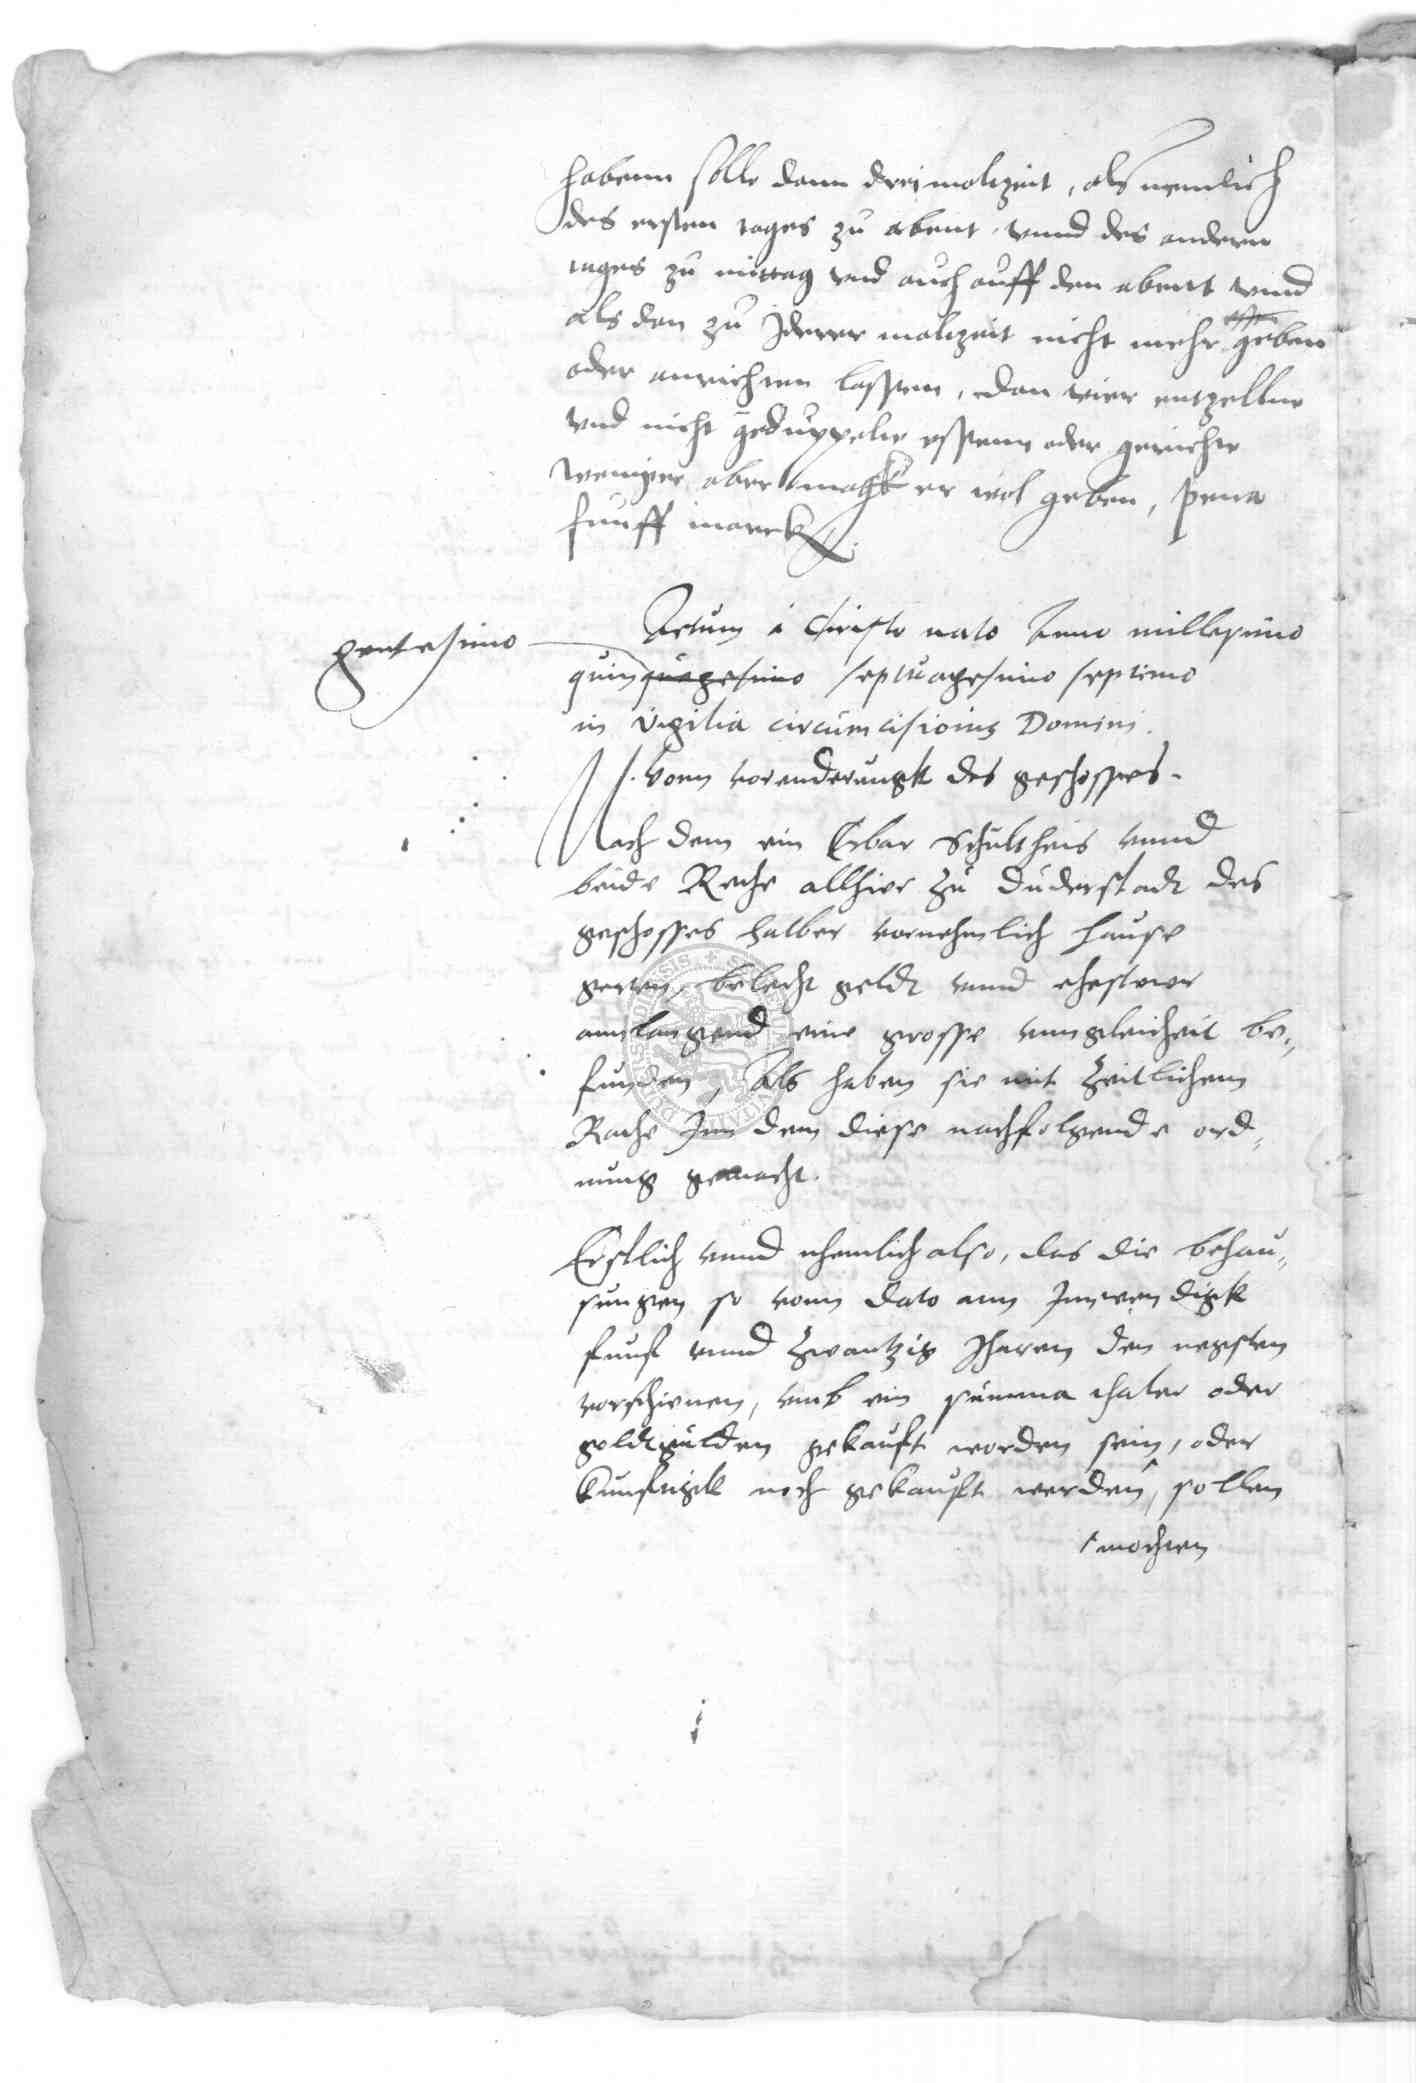 habenn solle dann drei malzeit, als nemlich
des ersten tages zu abent, vnnd des andern
tages zu mittag vnd auch auff den abent vnnd
als dan zu Iderer malzeit nicht mehr geben
oder anrichten lassen, dan vier entzellne
vnd nicht geduppelte essenn oder gerichte
weniger aber magk er wol geben, pena
funff marck
Actum à Christo nato Anno millesimo
gentesimo
quinquagesimo septuagesimo septimo
in vigilia circumcisionis Domini.
Vonn vorenderungk des geschosses.
Nach dem ein Erbar Schultheis vnnd
beide Rethe allhier zu Duderstadt des
geschosses halber vornehmlich hause
garten, belecht geldt vnnd
annlangend eine grosse vngleicheit be„
funden, Als haben sie mit Zeitlichem
Rathe Inn dem diese nachfolgende ord„
nung gemacht.
Erstlich vnnd nhemlich also, das die behau„
sungen so vonn Dato ann Innwendigk
funf vnnd Zwantzig Iharen den negsten
vorschienen, vmb ein summa thaler oder
goldtgulden gekauft worden sein, oder
kunftigk noch gekauft werden, sollen
mochten